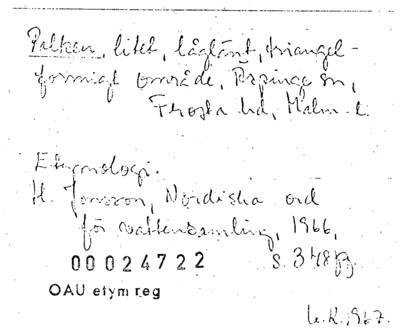 Pelken, litet, låglänt, triangel-
formigt område, Äspinge sn,
Frosta hd, Malm. l.
Etymologi.
H. Jonsson, Nordiska ord
för vattensamling, 1966,
s. 348 ff.
00024722
OAU etym reg
1967.